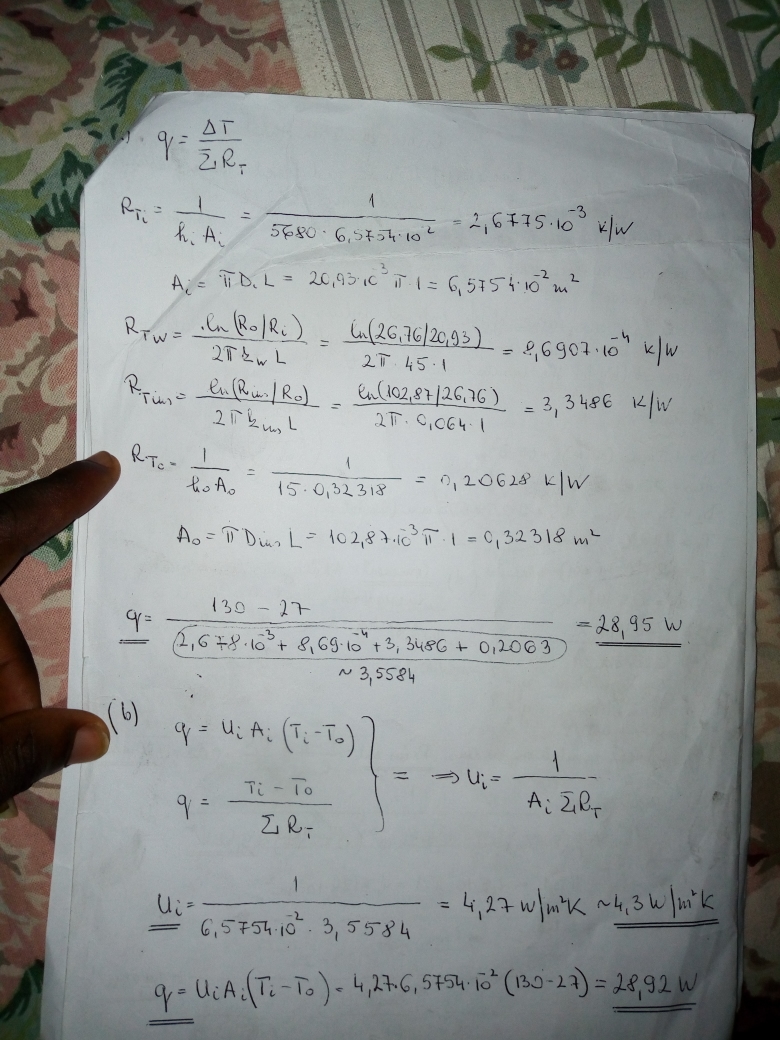 q = ΔT / ΣR_T
R_Ti = 1 / (h_i A_i) = 1 / (5680 · 6,5754·10^-2) = 2,6775·10^-3 K/W
A_i = π D_i L = 20,93·10^-3 π·1 = 6,5754·10^-2 m²
R_TW = ln(R_o/R_i) / (2π k_w L) = ln(26,76/20,93) / (2π·45·1) = 8,6907·10^-4 K/W
R_Tins = ln(R_ins/R_o) / (2π k_ins L) = ln(102,87/26,76) / (2π·0,064·1) = 3,3486 K/W
R_To = 1 / (h_o A_o) = 1 / (15·0,32318) = 0,20628 K/W
A_o = π D_ins L = 102,87·10^-3 π·1 = 0,32318 m²
q = (130 - 27) / (2,678·10^-3 + 8,69·10^-4 + 3,3486 + 0,2063) = 28,95 W
~ 3,5584
(b) q = U_i A_i (T_i - T_o)
q = (T_i - T_o) / ΣR_T } = ⇒ U_i = 1 / (A_i ΣR_T)
U_i = 1 / (6,5754·10^-2 · 3,5584) = 4,27 W/m²K ~ 4,3 W/m²K
q = U_i A_i (T_i - T_o) = 4,27·6,5754·10^-2 (130-27) = 28,92 W